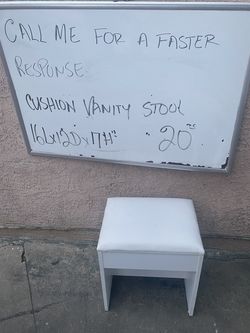 CALL ME FOR A FASTER
RESPONSE
CUSHION VANITY STOOL
16Lx12Dx17H" 20